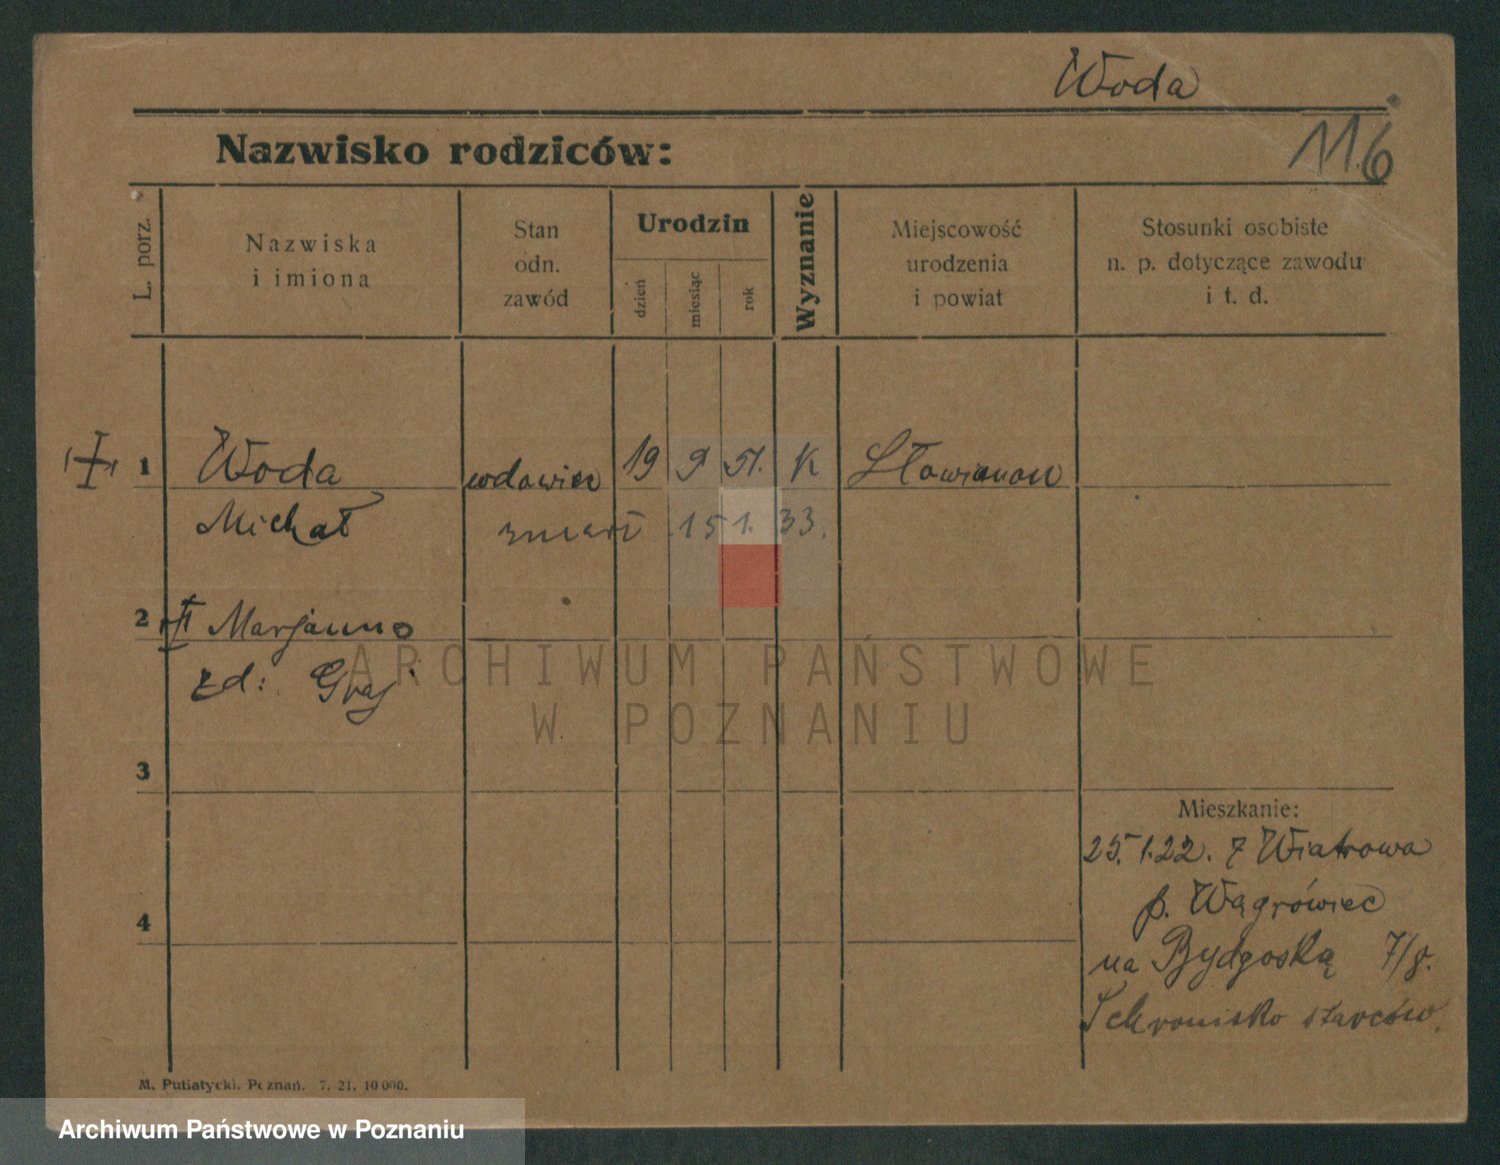 Woda
116
Nazwisko rodziców:
L. porz.
Nazwiska
i imiona
Stan
odn.
zawód
Urodzin
dzień
miesiąc
rok
Wyznanie
Miejscowość
urodzenia
i powiat
Stosunki osobiste
n. p. dotyczące zawodu
i t. d.
1 Woda wdowiec 19 9 51. K
Michał zmarł 15 1. 33.
2 Marjanna
zd: Graj
3
4
Mieszkanie:
25.1.22. z Wiatrowa
p. Wągrówiec
na Bydgoską 7/8.
Schronisko starców.
M. Putiatycki. Poznań. 7. 21. 10 000.
ARCHIWUM PAŃSTWOWE
W POZNANIU
Archiwum Państwowe w Poznaniu